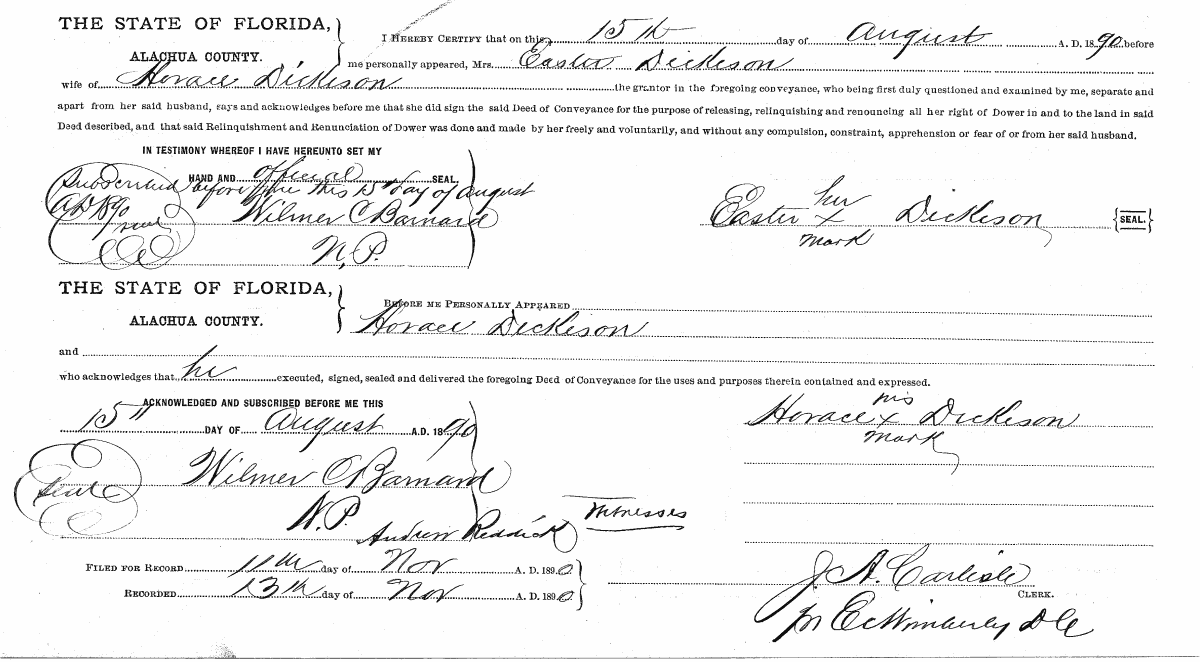 THE STATE OF FLORIDA,
ALACHUA COUNTY.
I HEREBY CERTIFY that on this 15th day of August A. D. 1890 before
me personally appeared, Mrs. Easter Dickison
wife of Horace Dickison the grantor in the foregoing conveyance, who being first duly questioned and examined by me, separate and
apart from her said husband, says and acknowledges before me that she did sign the said Deed of Conveyance for the purpose of releasing, relinquishing and renouncing all her right of Dower in and to the land in said
Deed described, and that said Relinquishment and Renunciation of Dower was done and made by her freely and voluntarily, and without any compulsion, constraint, apprehension or fear of or from her said husband.
IN TESTIMONY WHEREOF I HAVE HEREUNTO SET MY
HAND AND official SEAL.
Subscribed before me this 15th day of August
AD 1890
Wilmer C Barnard
seal
N.P.
her
Easter x Dickison {SEAL.}
mark
THE STATE OF FLORIDA,
ALACHUA COUNTY.
BEFORE ME PERSONALLY APPEARED
Horace Dickison
and
who acknowledges that he executed, signed, sealed and delivered the foregoing Deed of Conveyance for the uses and purposes therein contained and expressed.
ACKNOWLEDGED AND SUBSCRIBED BEFORE ME THIS
15th DAY OF August A.D. 1890
Wilmer C Barnard
seal
N.P.
his
Horace x Dickison
mark
Witnesses
Andrew Reddick
FILED FOR RECORD 11th day of Nov A. D. 1890
RECORDED 13th day of Nov A. D. 1890
J A. Carlisle
CLERK.
pr E C Wimberly D C